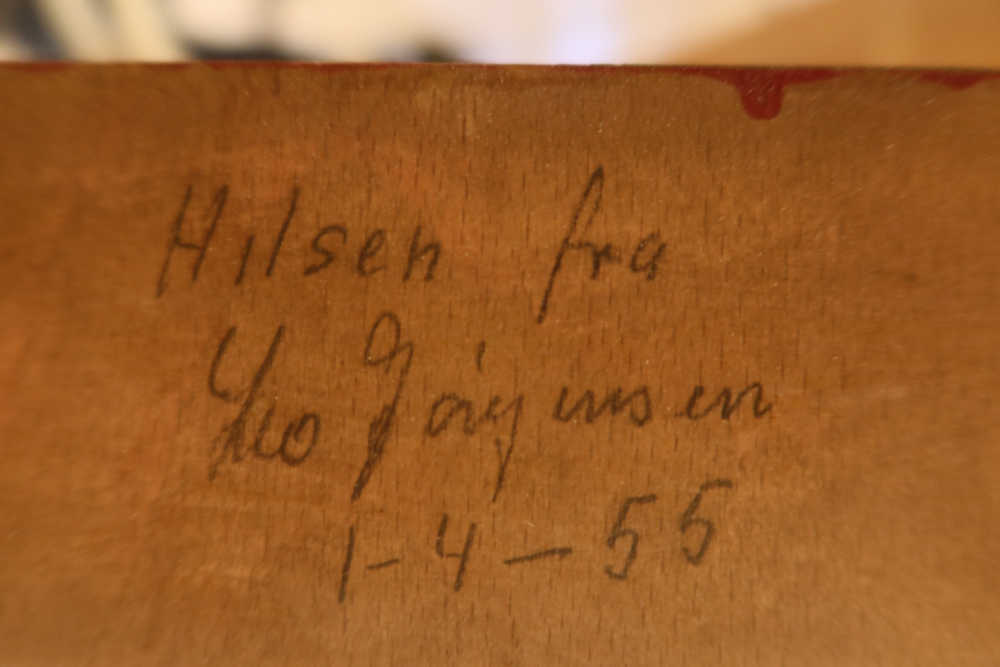 Hilsen fra
Jörgensen
1-4-55